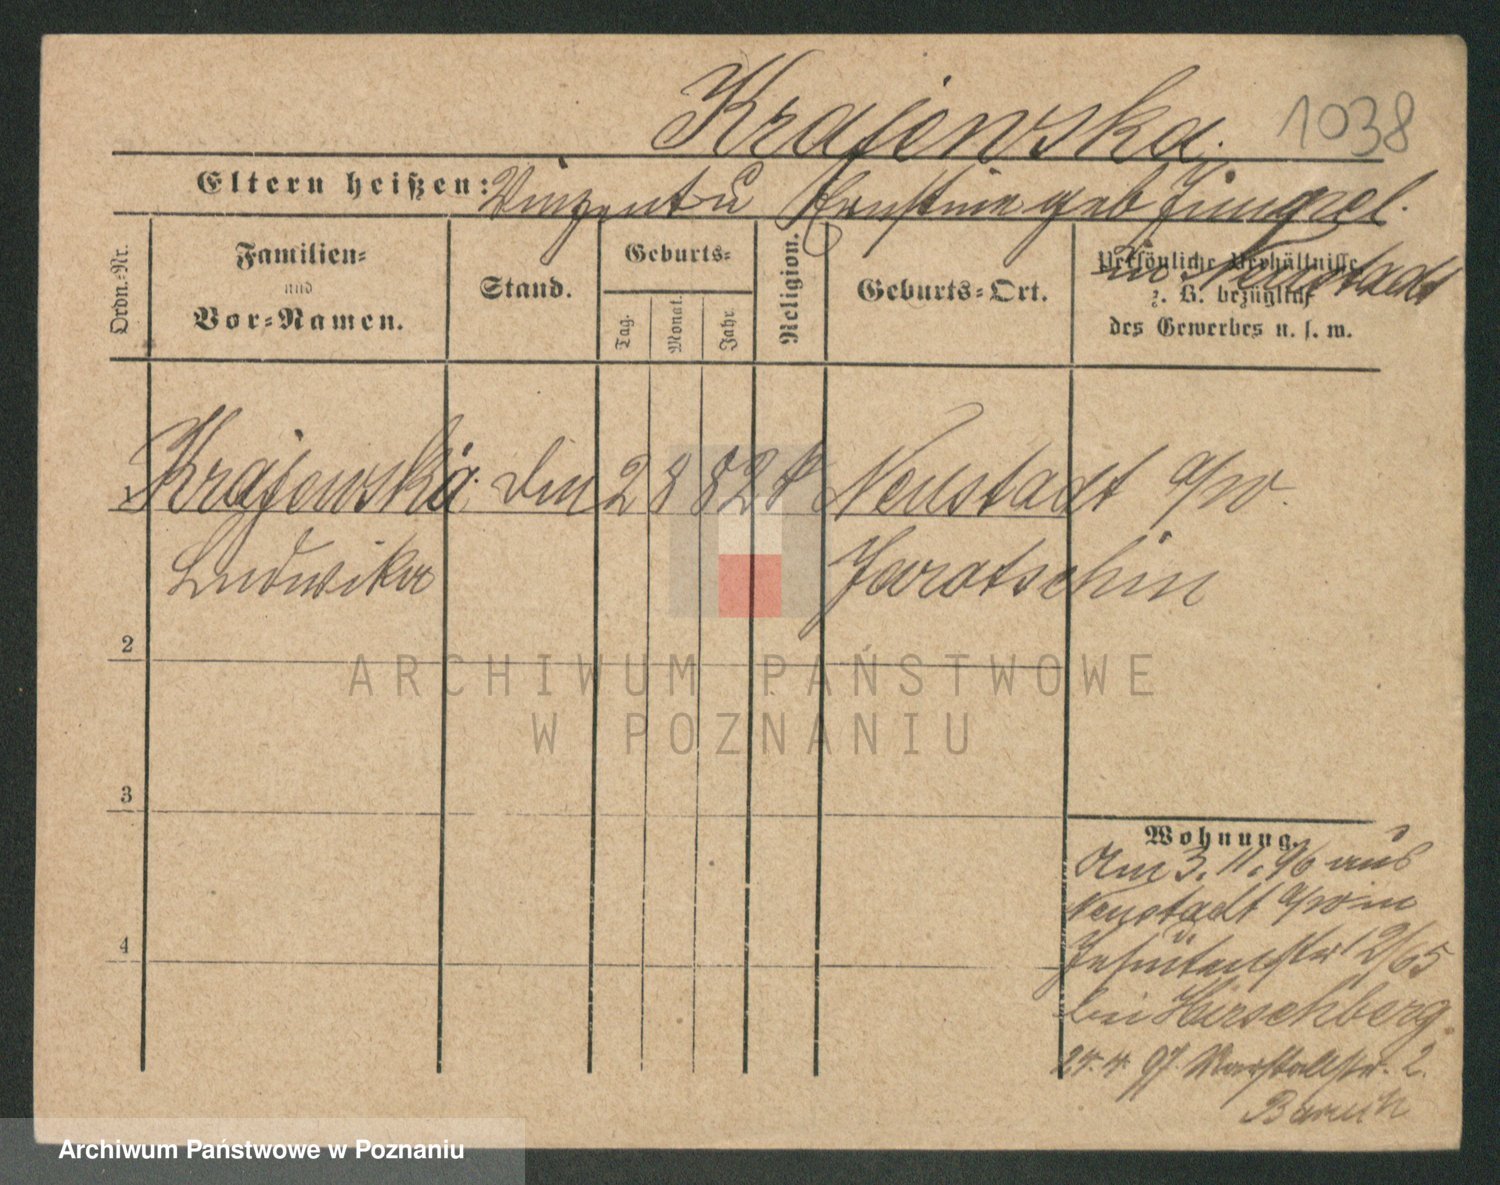 Krajewska.
1038
Eltern heißen: Vinzent u Ernstine geb Jungel.
in Neustadt
Ordn.-Nr.
Familien-
und
Vor-Namen.
Stand.
Geburts-
Tag.
Monat.
Jahr.
Religion.
Geburts-Ort.
Persönliche Verhältnisse
z. B. bezüglich
des Gewerbes u. s. w.
1 Krajewska. 2 8 82 k Neustadt a/W.
Ludwika Jarotschin
2
3
4
Wohnung.
Am 3. 11. 96 aus
Neustadt a/W in
Jesuitenstr 12/65
bei Hirschberg
24. 4. 97. Marstallstr. 2.
Baruch
ARCHIWUM PAŃSTWOWE
W POZNANIU
Archiwum Państwowe w Poznaniu